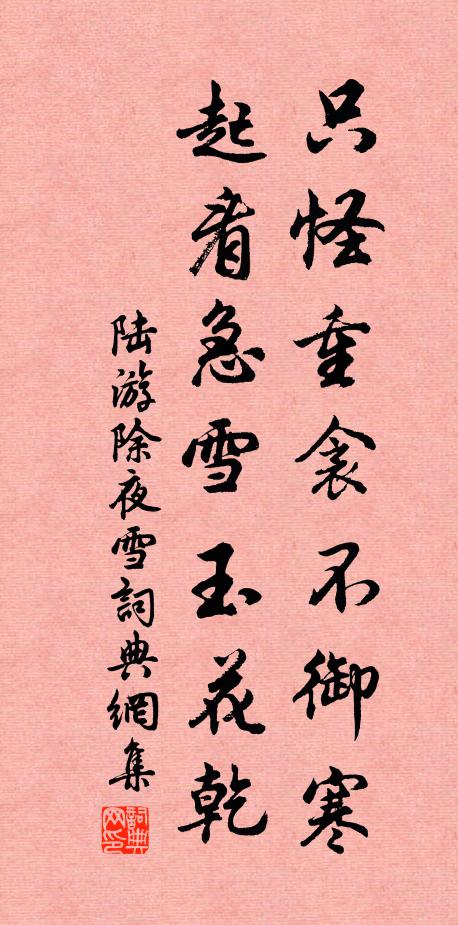 只怪重衾不御寒
起看急雪玉花乾
陆游除夜雪詞典網集
詞典网印